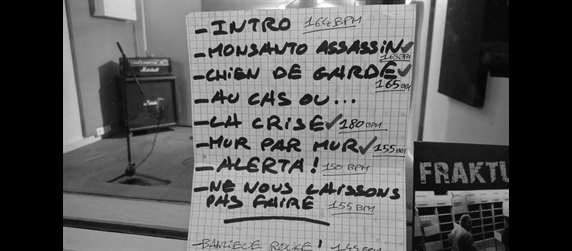 - INTRO 164 BPM
- MONSANTO ASSASSIN✓
165 BPM
- CHIEN DE GARDE✓
165 BPM
- AU CAS OU...
- LA CRISE✓ 180 BPM
- MUR PAR MUR✓ 155 BPM
- ALERTA! 150 BPM
- NE NOUS LAISSONS
PAS FAIRE 155 BPM
BANLIEUE ROUGE! 145 BPM
Marshall
FRAKTU